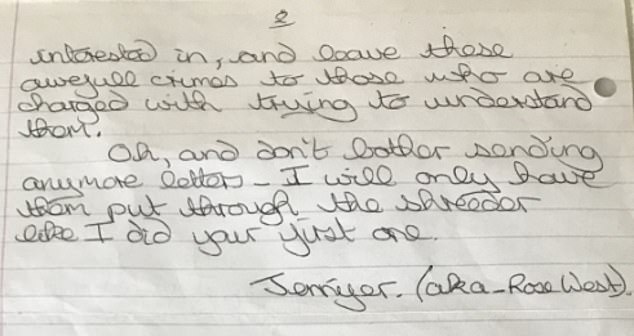 2
interested in, and leave these
awefull crimes to those who are
charged with trying to understand
them.
Oh, and don't bother sending
anymore letters - I will only have
them put through the shredder
like I did your just one.
(aka - Rose West).